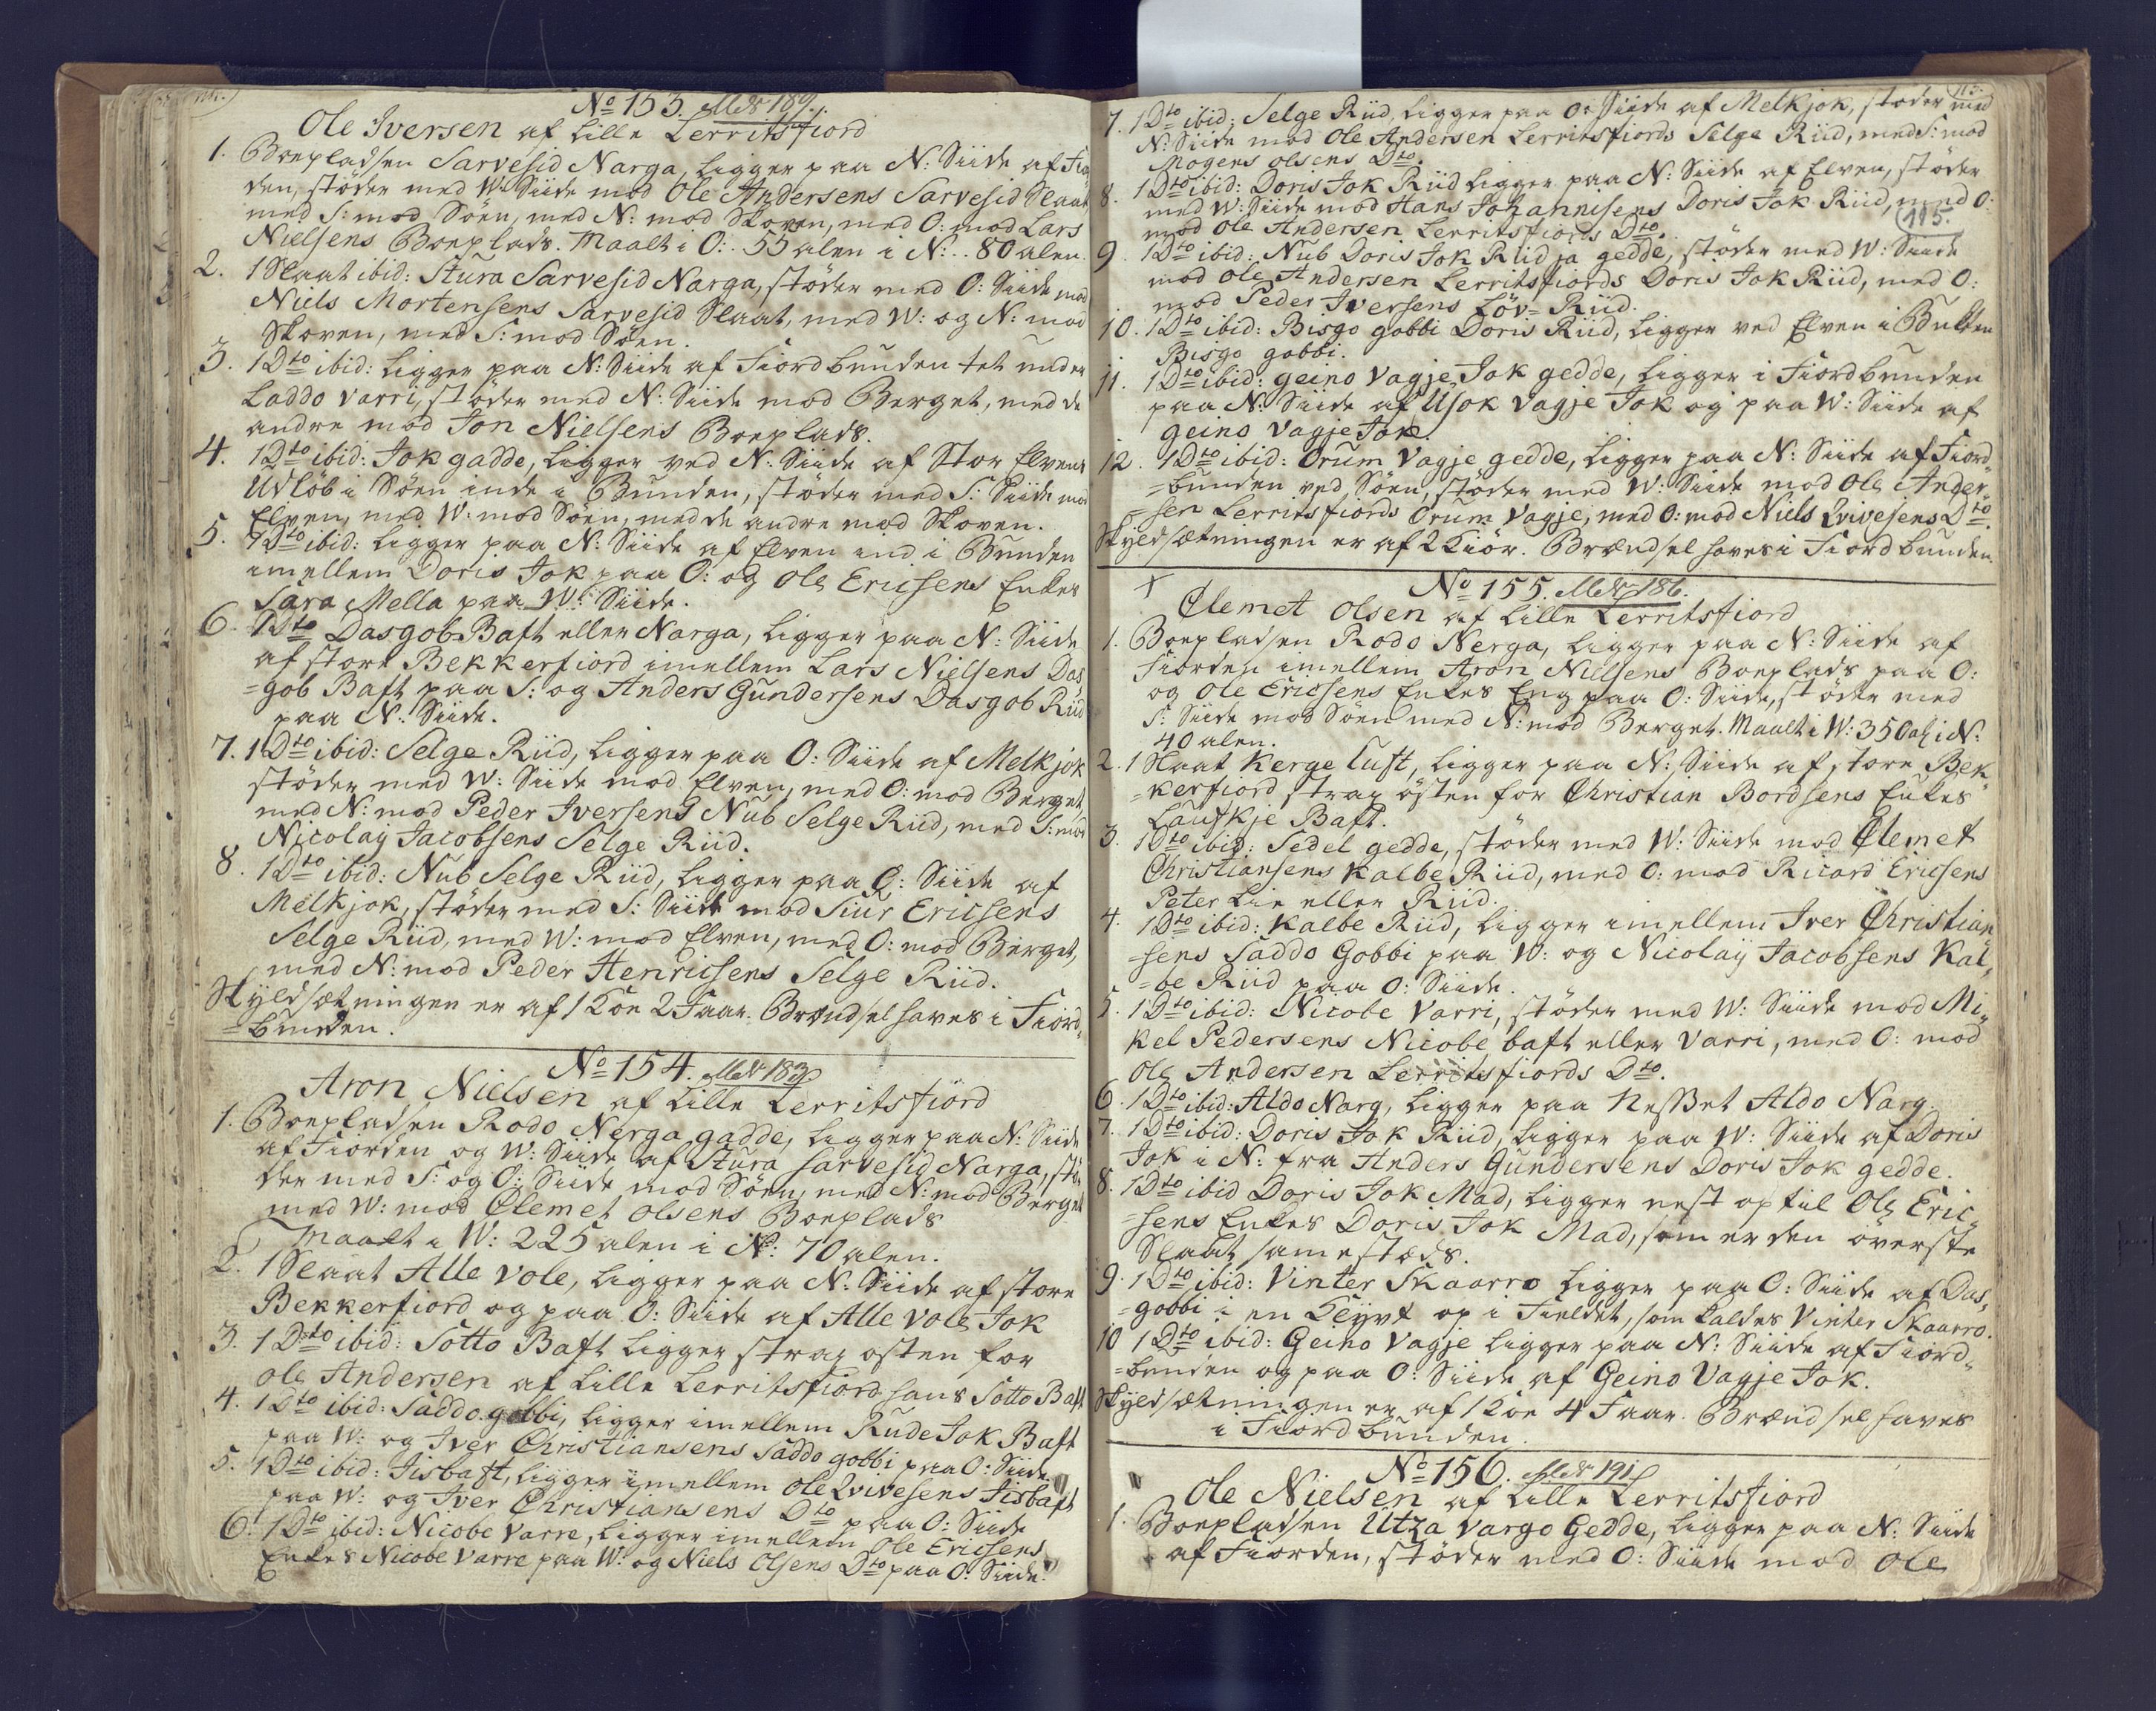 No 153. M No 189.
Ole Iversen af Lille Lerritsfiord
1. Boepladsen Sarvesid Narga, ligger paa N: Siide af Fior
den, støder med W: Siide mod Ole Andersens Sarvesid Slaat,
med S: mod Søen, med N: mod Skoven, med O: mod Lars
Nielsens Boeplads. Maalt i O: 55 alen i N: 80 alen.
2. 1 Slaat ibid: Stura Sarvesid Narga, støder med O: Siide mod
Niels Mortensens Sarvesid Slaat, med W: og N: mod
Skoven, med S: mod Søen.
3. 1 Dto ibid: ligger paa N: Siide af Fiordbunden tet under
Laddo varri, støder med N: Siide mod Berget, med de
andre mod Jon Nielsens Boeplads.
4. 1 Dto ibid: Jok gadde, ligger ved N: Siide af Stor Elvens
Udløb i Søen inde i Bunden, støder med S: Siide mod
Elven, med W: mod Søen, med de andre mod Skoven.
5. 1 Dto ibid: ligger paa N: Siide af Elven ind i Bunden
imellem Doris Jok paa O: og Ole Ericsens Enkes
Sara Mella paa W: Siide.
6. 1 Dto Dasgob Baft eller Narga, ligger paa N: Siide
af store Bekkerfiord imellem Lars Nielsens Das,
=gob Baft paa S: og Anders Gundersens Dasgob Riid
paa N: Siide.
7. 1 Dto ibid: Selge Riid, ligger paa O: Siide af Melkjok
støder med W: Siide mod Elven, med O: mod Berget,
med N: mod Peder Iversens Nub Selge Riid, med S: mod
Nicolay Jacobsens Selge Riid.
8. 1 Dto ibid: Nub Selge Riid, ligger paa O: Siide af
Melkjok, støder med S: Siide mod Siur Ericsens
Selge Riid, med W: mod Elven, med O: mod Berget,
med N: mod Peder Henricsens Selge Riid.
Skyldsætningen er af 1 Koe 2 Faar. Brændsel haves i Fiord,
=bunden.
No 154. M No 183.
Aron Nielsen af Lille Lerritsfiord
1. Boepladsen Rodo Nerga gadde, ligger paa N: Siide
af Fiorden og W: Siide af Stura sarvesid Narga, stø,
der med S: og O: Siide mod Søen, med N: mod Berget
med W: mod Clemet Olsens Boeplads
Maalt i W: 225 alen i N: 70 alen.
2. 1 Slaat Alle vole, ligger paa N: Siide af store
Bekkerfiord og paa O: Siide af Alle vole Jok
3. 1 Dto ibid: Sotto Baft ligger strax østen for
Ole Andersen af Lille Lerritsfiord hans Sotto Baft
4. 1 Dto ibid: Saddo gobbi, ligger imellem Rude Jok Baft
paa W: og Iver Christiansens Saddo gobbi paa O: Siide.
5. 1 Dto ibid: Fisbaft, ligger imellem Ole Qvivesens Fisbaft
paa W: og Iver Christiansens Dto paa O: Siide
6. 1 Dto ibid: Nicobe Varre, ligger imellem Ole Ericsens
Enkes Nicobe Varre paa W: og Niels Olsens Dto paa O: Siide.
7. 1 Dto ibid: Selge Riid, ligger paa O: Siide af Melkjok, støder med
N: Siide mod Ole Andersen Lerritsfiords Selge Riid, med S: mod
Mogens Olsens Dto.
8. 1 Dto ibid: Doris Jok Riid ligger paa N: Siide af Elven, støder
med W: Siide mod Hans Johannisens Doris Jok Riid, med O:
mod Ole Andersen Lerritsfiords Dto.
115.
9. 1 Dto ibid: Nub Doris Jok Riid ja gedde, støder med W: Siide
mod Ole Andersen Lerritsfiords Doris Jok Riid, med O:
mod Peder Iversens Löv-Riid.
10. 1 Dto ibid: Bisgo gobbi Doris Riid, ligger ved Elven i Bugten
Bisgo gobbi.
11. 1 Dto ibid: geino vagje Jok gedde, ligger i Fiordbunden
paa N: Siide af Usok vagje Jok og paa W: Siide af
geino vagje Jok.
12. 1 Dto ibid: Orum vagje gedde, ligger paa N: Siide af Fiord,
=bunden ved Søen, støder med W: Siide mod Ole Ander,
=sen Lerritsfiords Orum Vagje, med O: mod Niels Qvivesens Dto.
Skyldsætningen er af 2 Kiör. Brændsel haves i Fiordbunden.
No 155. M No 186.
Clemet Olsen af Lille Lerritsfiord
1. Boepladsen Rodo Nerga, ligger paa N: Siide af
Fiorden imellem Aron Nielsens Boeplads paa O:
og Ole Ericsens Enkes Eng paa O: Siide, støder med
S: Siide mod Søen med N: mod Berget. Maalt i W: 350 al i N:
40 alen.
2. 1 Slaat Kerge Luft, ligger paa N: Siide af store Bek
=kerfiord, strax østen for Christian Bordsens Enkes
Laufkje Baft.
3. 1 Dto ibid: Sedel gedde, støder med W: Siide mod Clemet
Christiansens Kalbe Riid, med O: mod Ricard Ericsens
Peter Lie eller Riid.
4. 1 Dto ibid: Kalbe Riid, ligger imellem Iver Christian
=sens Saddo Gobbi paa W: og Nicolay Jacobsens Kal,
=be Riid paa O: Siide.
5. 1 Dto ibid: Nicobe Varri, støder med W: Siide mod Mi,
kel Pedersens Nicobe baft eller Varri, med O: mod
Ole Andersen Lerritsfiords Dto.
6. 1 Dto ibid: Aldo Narg, ligger paa Nesset Aldo Narg.
7. 1 Dto ibid: Doris Jok Riid, ligger paa W: Siide af Doris
Jok i N: fra Anders Gundersens Doris Jok gedde.
8. 1 Dto ibid Doris Jok Mad, ligger nest op til Ole Eric,
=sens Enkes Doris Jok Mad, som er den överste
Slaat samestæds.
9. 1 Dto ibid: Vinter Skaarro ligger paa O: Siide af Das,
=gobbi i en Kløvt op i Fieldet, som kaldes Vinter Skaarro.
10 1 Dto ibid: Geino Vagje ligger paa N: Siide af Fiord,
=bunden og paa O: Siide af Geino Vagje Jok.
Skyldsætningen er af 1 Koe 4 Faar. Brændsel haves
i Fiordbunden.
No 156. M No 191.
Ole Nielsen af Lille Lerritsfiord
1. Boepladsen Utza vargo Gedde, ligger paa N: Siide
af Fiorden, støder med O: Siide mod Ole